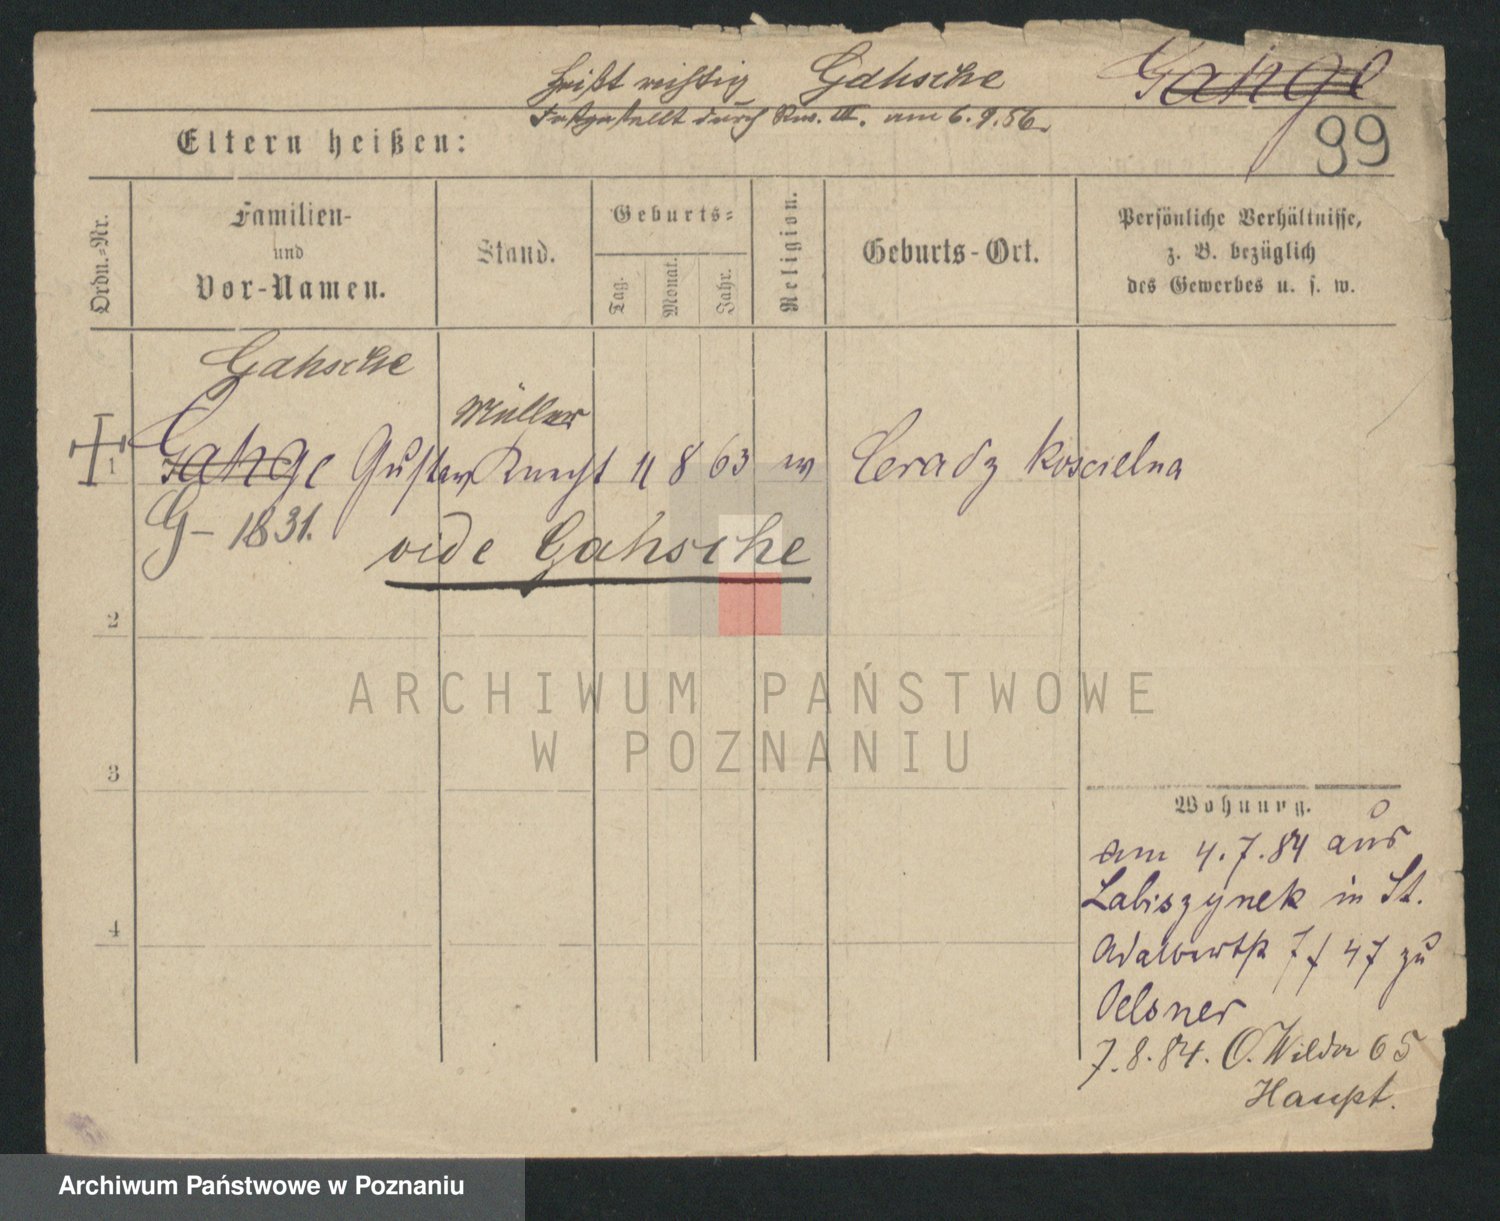 heißt richtig Gahsche Gahge
Festgestellt durch Rev. III. am 6.9.86.
99
Eltern heißen:
Ordn.-Nr.
Familien-
und
Vor-Namen.
Stand.
Geburts-
Tag.
Monat.
Jahr.
Religion.
Geburts-Ort.
Persönliche Verhältnisse,
z. B. bezüglich
des Gewerbes u. s. w.
Gahsche
Müller
1 Gahge Gustav Knecht 11 8 63 w Ceradz koscielna
G- 1831.
vide Gahsche
2
3
4
Wohnung.
am 4.7.84 aus
Labiszynek in St.
Adalbertstr 47 zu
Oelsner
7.8.84. O. Wilda 65
Haupt.
ARCHIWUM PAŃSTWOWE
W POZNANIU
Archiwum Państwowe w Poznaniu